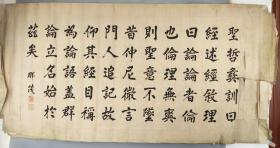 聖哲彝訓曰
經述經敘理
曰論論者倫
也倫理無爽
則聖意不墜
昔仲尼微言
門人追記故
仰其經目稱
為論語蓋群
論立名始於
茲矣